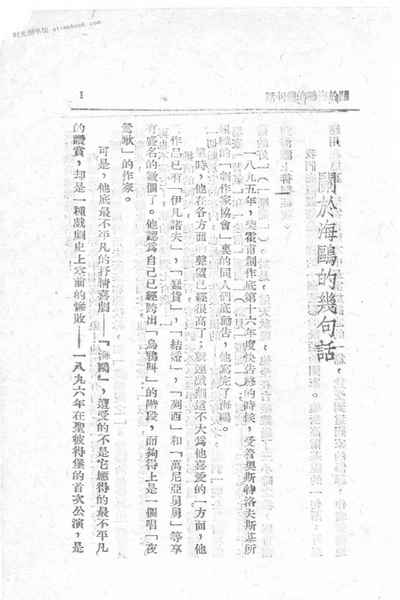 時光圖書館 stimebook.com
關於海鷗的幾句話
1
關於海鷗的幾句話
一八九五年，柴霍甫創作底第十六年度快告終的時候，受着奧斯特洛夫斯基所
組織的「劇作家協會」裏的同人們底勸告，他寫完了海鷗。
時，他在各方面聲望已經很高了；就連戲劇這不大爲他喜愛的一方面，他
作已已有「伊凡諾夫」，「蠢貨」，「結婚」，「列西」和「萬尼亞舅舅」等享
有盛名的幾個了。他認爲自己已經跨出「烏鴉叫」的階段，而夠得上是一個唱「夜
鶯歌」的作家。
可是，他底最不平凡的抒情喜劇——「海鷗」，遭受的不是它應得的最不平凡
的讚賞，却是一種戲劇史上空前的慘敗——一八九六年在聖彼得堡的首次公演，是